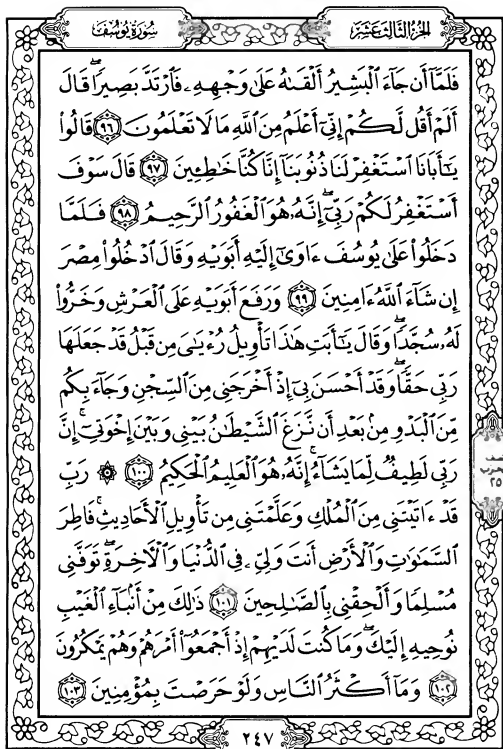 سُورَةُ يُوسُفَ
الجُزْءُ الثَّالِثَ عَشَرَ
فَلَمَّآ أَن جَآءَ ٱلۡبَشِيرُ أَلۡقَىٰهُ عَلَىٰ وَجۡهِهِۦ فَٱرۡتَدَّ بَصِيرٗاۖ قَالَ
أَلَمۡ أَقُل لَّكُمۡ إِنِّيٓ أَعۡلَمُ مِنَ ٱللَّهِ مَا لَا تَعۡلَمُونَ ٩٦ قَالُواْ
يَٰٓأَبَانَا ٱسۡتَغۡفِرۡ لَنَا ذُنُوبَنَآ إِنَّا كُنَّا خَٰطِـِٔينَ ٩٧ قَالَ سَوۡفَ
أَسۡتَغۡفِرُ لَكُمۡ رَبِّيٓۖ إِنَّهُۥ هُوَ ٱلۡغَفُورُ ٱلرَّحِيمُ ٩٨ فَلَمَّا
دَخَلُواْ عَلَىٰ يُوسُفَ ءَاوَىٰٓ إِلَيۡهِ أَبَوَيۡهِ وَقَالَ ٱدۡخُلُواْ مِصۡرَ
إِن شَآءَ ٱللَّهُ ءَامِنِينَ ٩٩ وَرَفَعَ أَبَوَيۡهِ عَلَى ٱلۡعَرۡشِ وَخَرُّواْ
لَهُۥ سُجَّدٗاۖ وَقَالَ يَٰٓأَبَتِ هَٰذَا تَأۡوِيلُ رُءۡيَٰيَ مِن قَبۡلُ قَدۡ جَعَلَهَا
رَبِّي حَقّٗاۖ وَقَدۡ أَحۡسَنَ بِيٓ إِذۡ أَخۡرَجَنِي مِنَ ٱلسِّجۡنِ وَجَآءَ بِكُم
مِّنَ ٱلۡبَدۡوِ مِنۢ بَعۡدِ أَن نَّزَغَ ٱلشَّيۡطَٰنُ بَيۡنِي وَبَيۡنَ إِخۡوَتِيٓۚ إِنَّ
رَبِّي لَطِيفٞ لِّمَا يَشَآءُۚ إِنَّهُۥ هُوَ ٱلۡعَلِيمُ ٱلۡحَكِيمُ ١٠٠ ۞ رَبِّ
قَدۡ ءَاتَيۡتَنِي مِنَ ٱلۡمُلۡكِ وَعَلَّمۡتَنِي مِن تَأۡوِيلِ ٱلۡأَحَادِيثِۚ فَاطِرَ
ٱلسَّمَٰوَٰتِ وَٱلۡأَرۡضِ أَنتَ وَلِيِّۦ فِي ٱلدُّنۡيَا وَٱلۡأٓخِرَةِۖ تَوَفَّنِي
مُسۡلِمٗا وَأَلۡحِقۡنِي بِٱلصَّٰلِحِينَ ١٠١ ذَٰلِكَ مِنۡ أَنۢبَآءِ ٱلۡغَيۡبِ
نُوحِيهِ إِلَيۡكَۖ وَمَا كُنتَ لَدَيۡهِمۡ إِذۡ أَجۡمَعُوٓاْ أَمۡرَهُمۡ وَهُمۡ يَمۡكُرُونَ
١٠٢ وَمَآ أَكۡثَرُ ٱلنَّاسِ وَلَوۡ حَرَصۡتَ بِمُؤۡمِنِينَ ١٠٣
نصف
الحزب
٢٥
٢٤٧